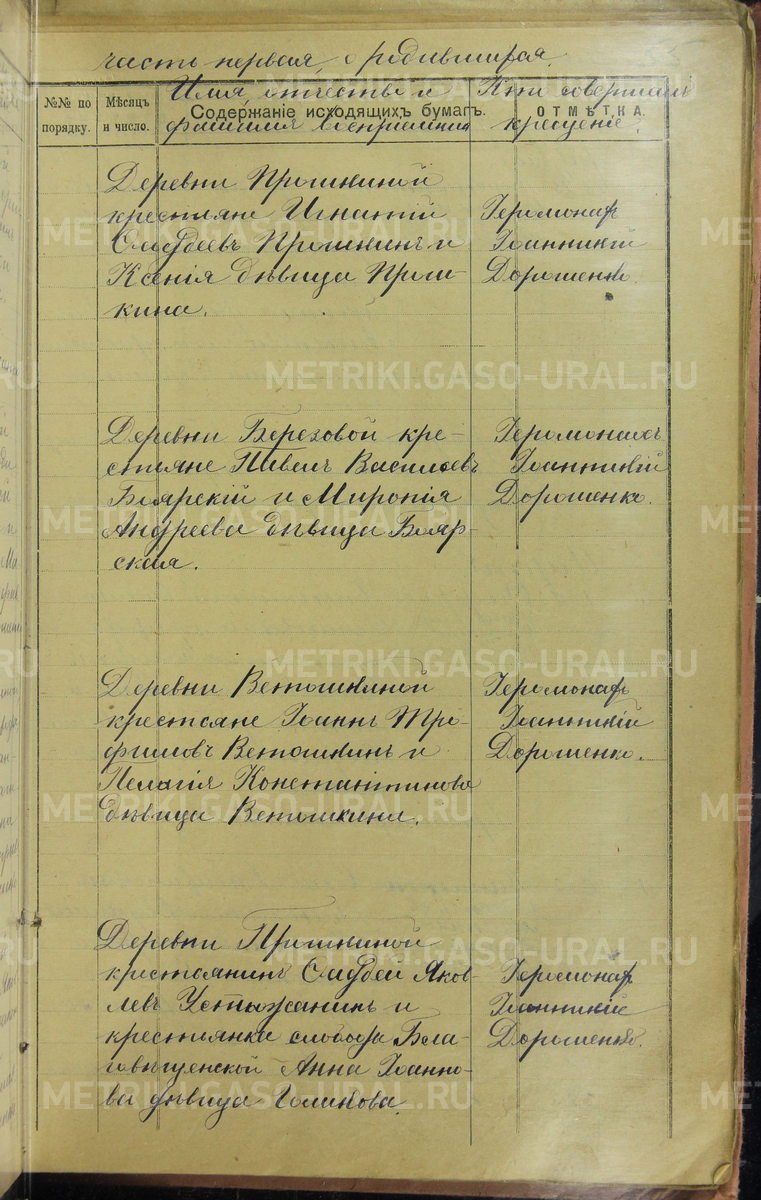 часть первая, о родившихся.
№№ по порядку.
Мѣсяцъ и число.
Содержаніе исходящихъ бумагъ.
ОТМѢТКА.
Имя, отчество и
фамилия восприемник
Кто совершалъ
крещение.
Деревни Прошкиной
крестьяне Игнатий
Прошкинъ и
Ксенія дѣвица Прош-
кина.
Іеромонах
Іоанникій
Дорошенко.
Деревни Березовой кре-
стьяне Павелъ Васильевъ
Боярскій и Миронія
Андреева дѣвица Бояр-
ская.
Іеромонахъ
Іоанникій
Дорошенко.
Деревни Ветошкиной
крестьяне Іоаннъ Тро-
фимовъ Ветошкинъ и
Пелагія Константинова
дѣвица Ветошкина.
Іеромонахъ
Іоанникій
Дорошенко.
Деревни Прошкиной
крестьянинъ Яков-
левъ Устюжанинъ и
крестьянка слобода Бла-
говѣщенской Анна Іоанно-
ва дѣвица Голикова.
Іеромонах
Іоанникіи
Дорошенко.
METRIKI.GASO-URAL.RU